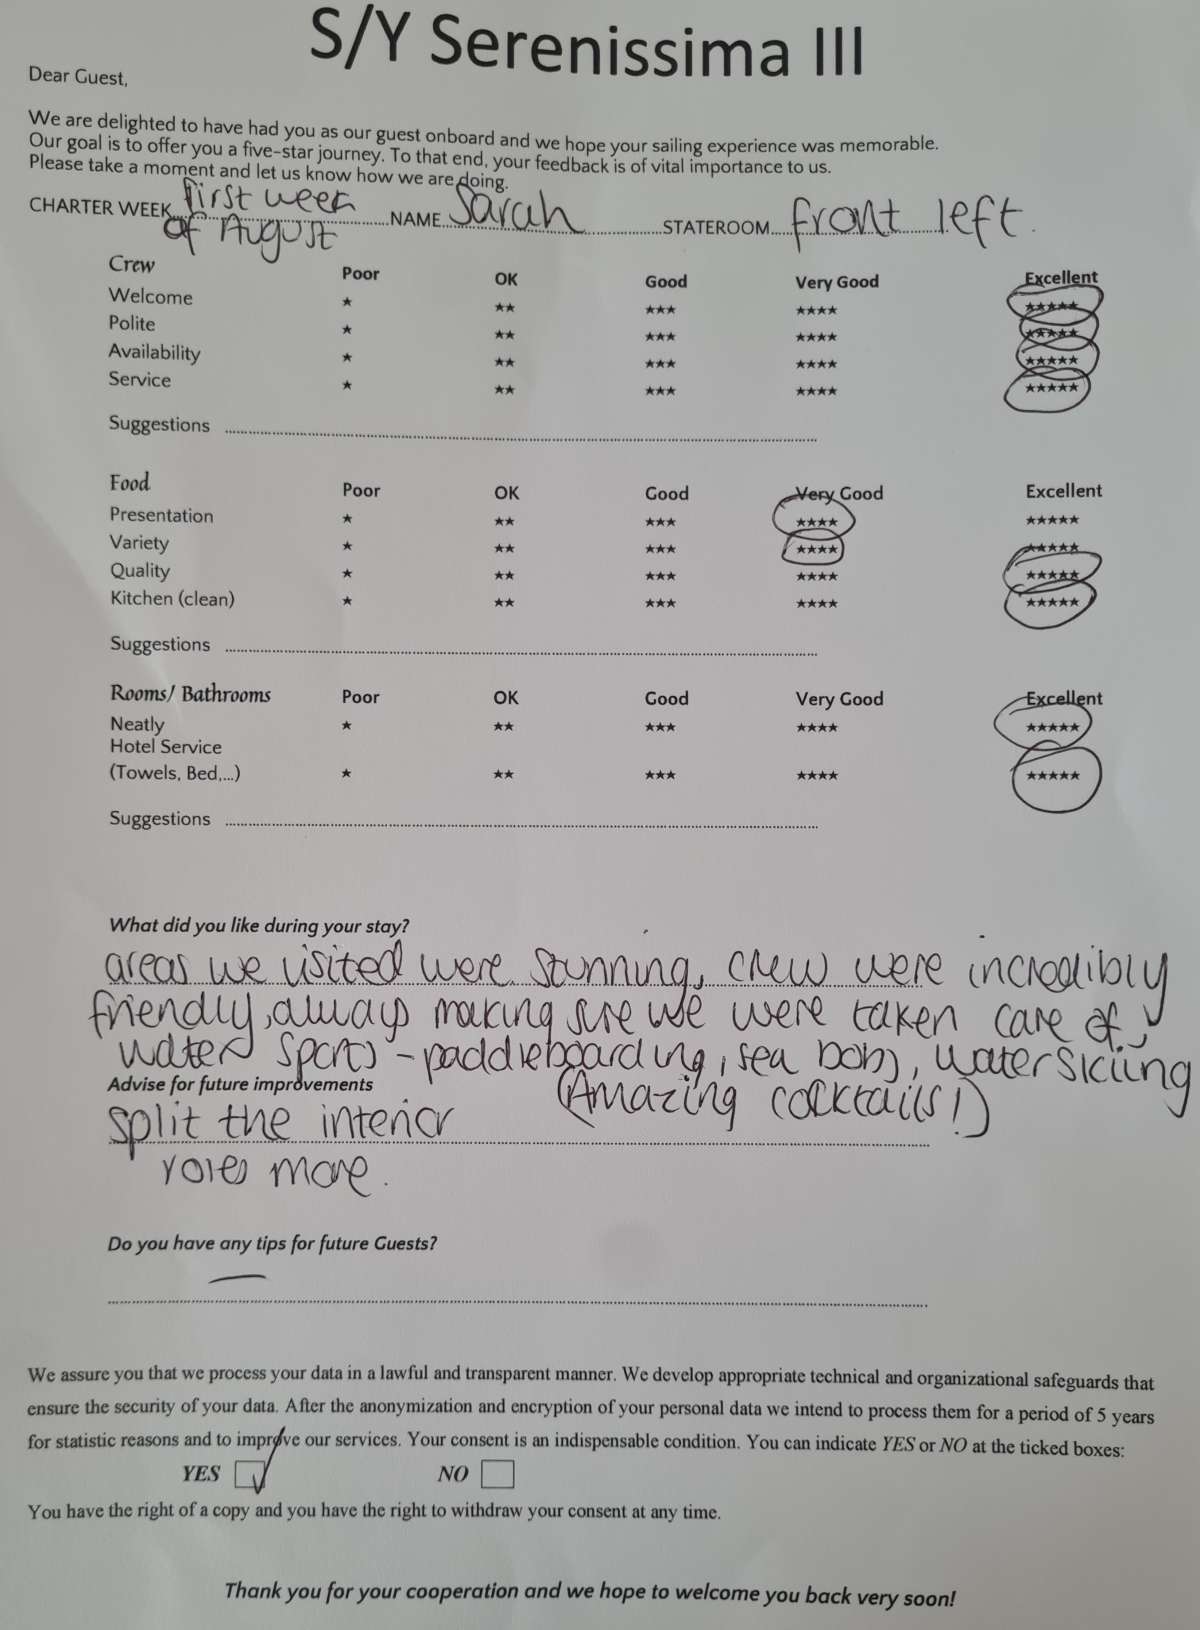 S/Y Serenissima III
Dear Guest,
We are delighted to have had you as our guest onboard and we hope your sailing experience was memorable.
Our goal is to offer you a five-star journey. To that end, your feedback is of vital importance to us.
Please take a moment and let us know how we are doing.
CHARTER WEEK first week NAME Sarah STATEROOM front left.
of August
Crew Poor OK Good Very Good Excellent
Welcome ★ ★★ ★★★ ★★★★ ★★★★★
Polite ★ ★★ ★★★ ★★★★ ★★★★★
Availability ★ ★★ ★★★ ★★★★ ★★★★★
Service ★ ★★ ★★★ ★★★★ ★★★★★
Suggestions
Food Poor OK Good Very Good Excellent
Presentation ★ ★★ ★★★ ★★★★ ★★★★★
Variety ★ ★★ ★★★ ★★★★ ★★★★★
Quality ★ ★★ ★★★ ★★★★ ★★★★★
Kitchen (clean) ★ ★★ ★★★ ★★★★ ★★★★★
Suggestions
Rooms/ Bathrooms Poor OK Good Very Good Excellent
Neatly ★ ★★ ★★★ ★★★★ ★★★★★
Hotel Service
(Towels, Bed,...) ★ ★★ ★★★ ★★★★ ★★★★★
Suggestions
What did you like during your stay?
areas we visited were stunning, crew were incredibly
friendly, always making sure we were taken care of,
water sports - paddleboarding, sea bobs, waterskiing
(Amazing cocktails!)
Advise for future improvements
split the interior
roles more.
Do you have any tips for future Guests?
—
We assure you that we process your data in a lawful and transparent manner. We develop appropriate technical and organizational safeguards that
ensure the security of your data. After the anonymization and encryption of your personal data we intend to process them for a period of 5 years
for statistic reasons and to improve our services. Your consent is an indispensable condition. You can indicate YES or NO at the ticked boxes:
YES ✓ NO
You have the right of a copy and you have the right to withdraw your consent at any time.
Thank you for your cooperation and we hope to welcome you back very soon!